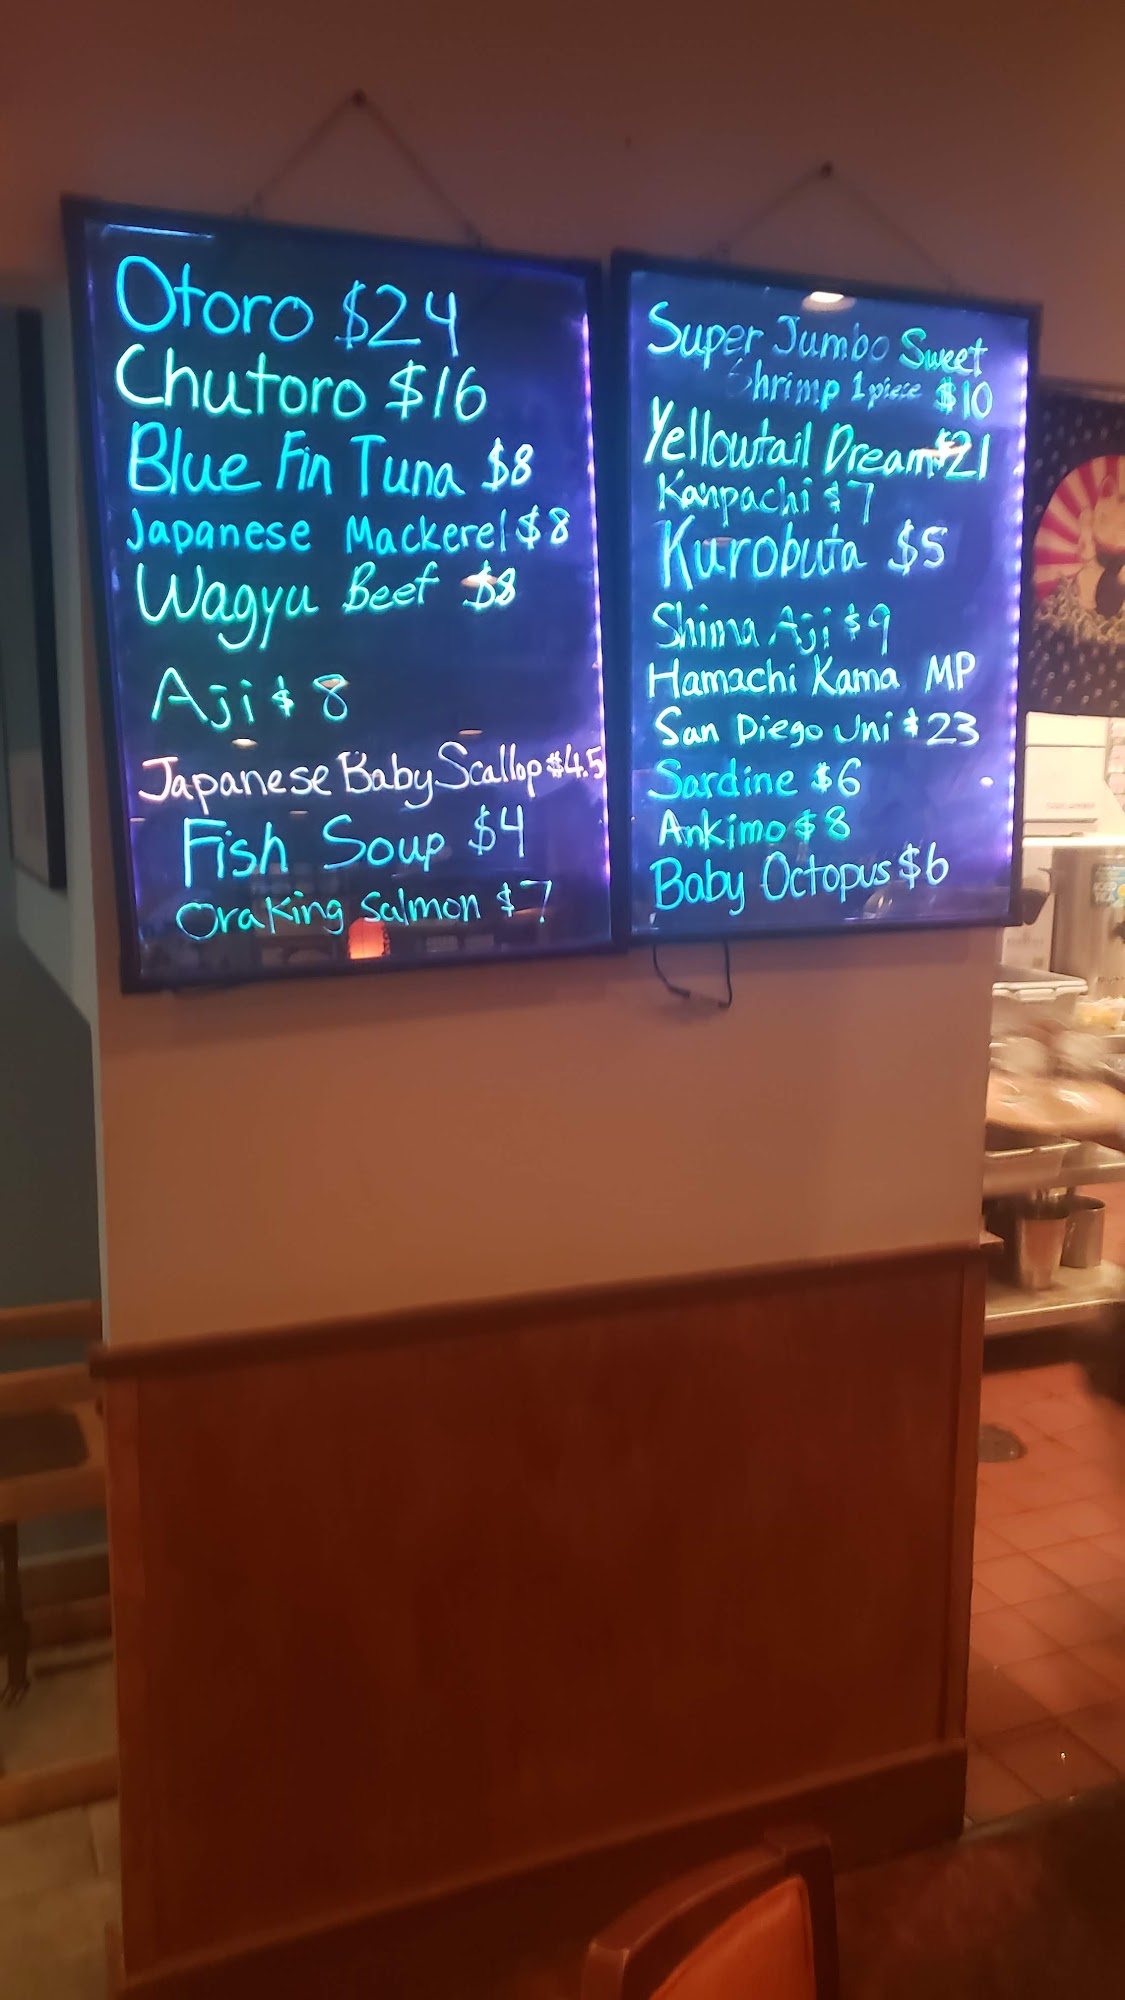 Otoro $24
Chutoro $16
Blue Fin Tuna $8
Japanese Mackerel $8
Wagyu Beef $8
Aji $8
Japanese Baby Scallop $4.5
Fish Soup $4
Ora King Salmon $7
Super Jumbo Sweet
Shrimp 1 piece $10
Yellowtail Dream $21
Kanpachi $7
Kurobuta $5
Shima Aji $9
Hamachi Kama MP
San Diego Uni $23
Sardine $6
Ankimo $8
Baby Octopus $6